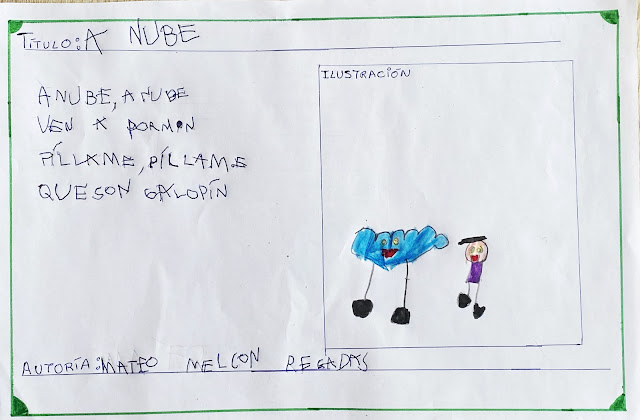 TÍTULO: A NUBE
ILUSTRACIÓN
A NUBE, A NUBE
VEN A DORMIN
PÍLLAME, PÍLLAME
QUE SON GALOPÍN
AUTORÍA: MATEO MELCON REGADAS